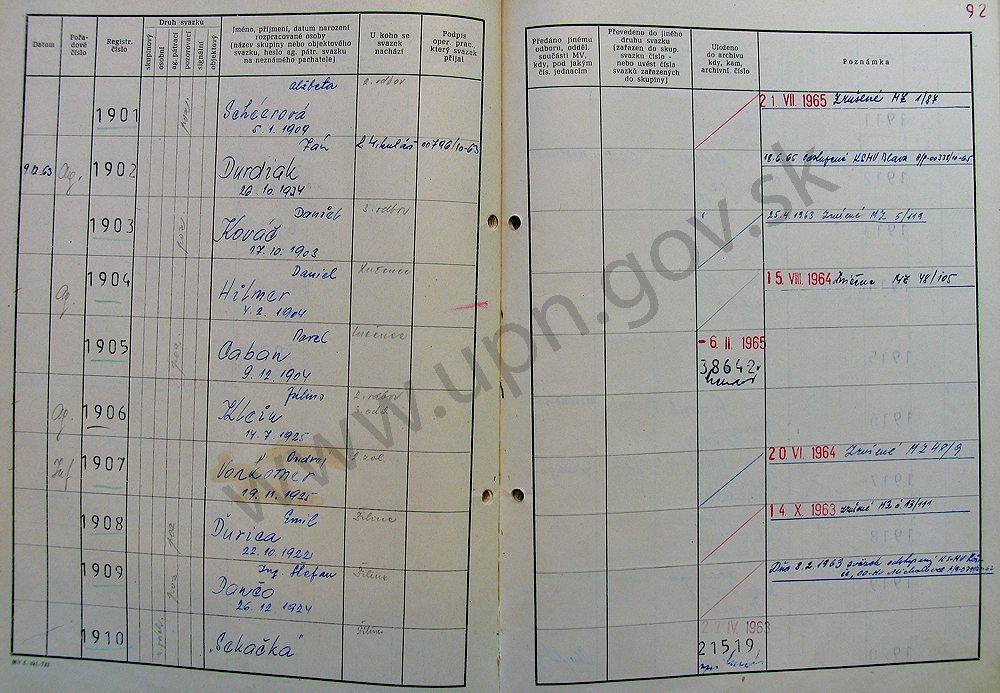 92
Datum
Pořa-
dové
číslo
Registr.
číslo
Druh svazku
skupinový
osobní
ag. pátrací
pozorovací
signální
objektový
Jméno, příjmení, datum narození
rozpracované osoby
(název skupiny nebo objektového
svazku, heslo ag. pátr. svazku
na neznámého pachatele)
U koho se
svazek
nachází
Podpis
oper. prac.,
který svazek
přijal
Předáno jinému
odboru, odděl.
součásti MV,
kdy, pod jakým
čís. jednacím
Převedeno do jiného
druhu svazku
(zařazen do skup.
svazku číslo -
nebo uvést čísla
svazků zařazených
do skupiny)
Uloženo
do archivu
kdy, kam,
archivní číslo
Poznámka
1901 poz. Alžbeta 2. odbor
Schéerová
5.1.1909
21. VII. 1965 Zrušené MZ 1/87
9.12.63 Ag. 1902 Ján L. Mikuláš 00796/10-63
Durdiak
26.10.1924
18.6.65 odstúpené KSMV
1903 poz Daniel 3. odbor
Kováč
17.10.1903
25.4.1963 Zrušené MZ 5/119
Ag. 1904 Daniel Lučenec
Hilmer
4.2.1904
15. VIII. 1964 Zničené MZ 48/105
1905 poz Pavel Lučenec
Caban
9.12.1904
- 6. II. 1965
38642
Ag. 1906 Júlino 2. odbor
Klein
14.7.1925
Inf 1907 Ondrej
Von Lotner
19.11.1925
20. VI. 1964 Zrušené MZ 48/9
1908 poz Emil Žilina
Ďurica
22.10.1922
14. X. 1963 zrušené MZ č 13/111
1909 poz Ing. Štefan Žilina
Dančo
26.12.1924
Dňa 8.2.1963 sväzok odstúpený KS-MV
1910 Žilina
"Sekačka"
27. IV. 1963
21519
www.upn.gov.sk